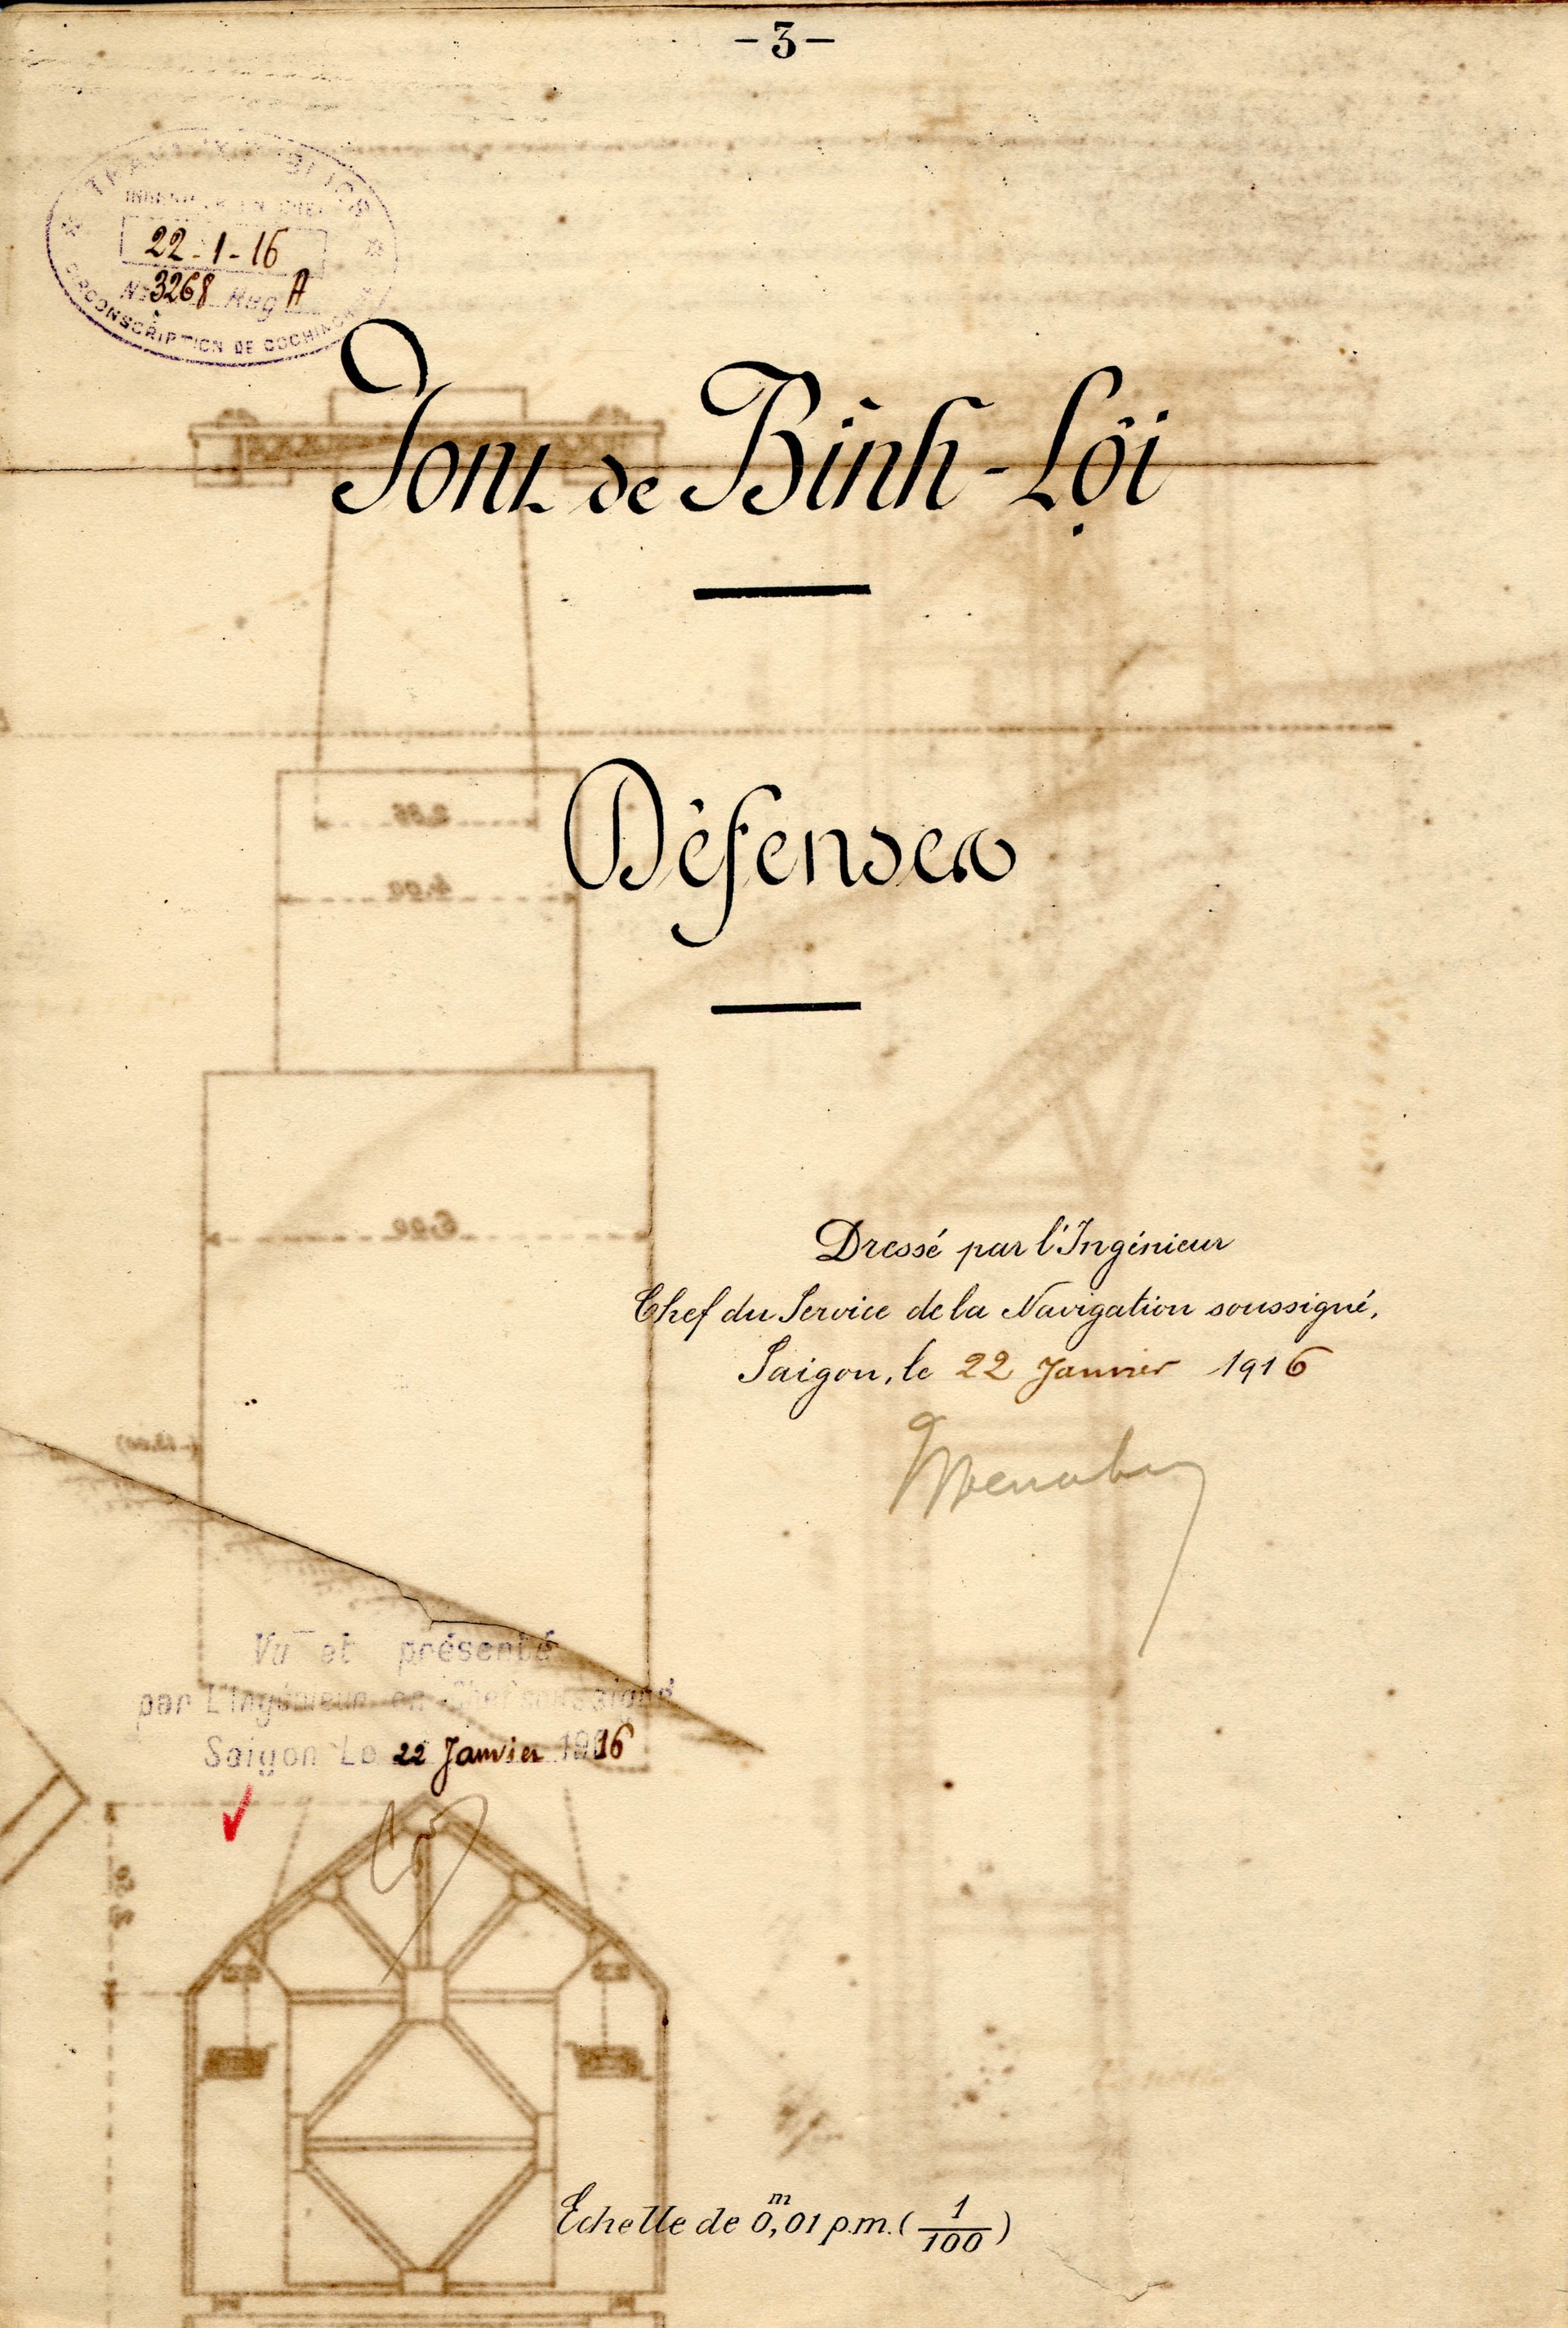 - 3 -
TRAVAUX PUBLICS
INGÉNIEUR EN CHEF
22-1-16
N° 3268 Reg A
CIRCONSCRIPTION DE COCHINCHINE
Pont de Bình-Lợi
Défenses
2,86
4,00
6,00
Dressé par l'Ingénieur
Chef du Service de la Navigation soussigné,
Saigon, le 22 Janvier 1916
(-13,00)
Vu et présenté
par L'Ingénieur en Chef soussigné
Saigon Le 22 Janvier 1916
Echelle de 0,01 p.m. (1/100)